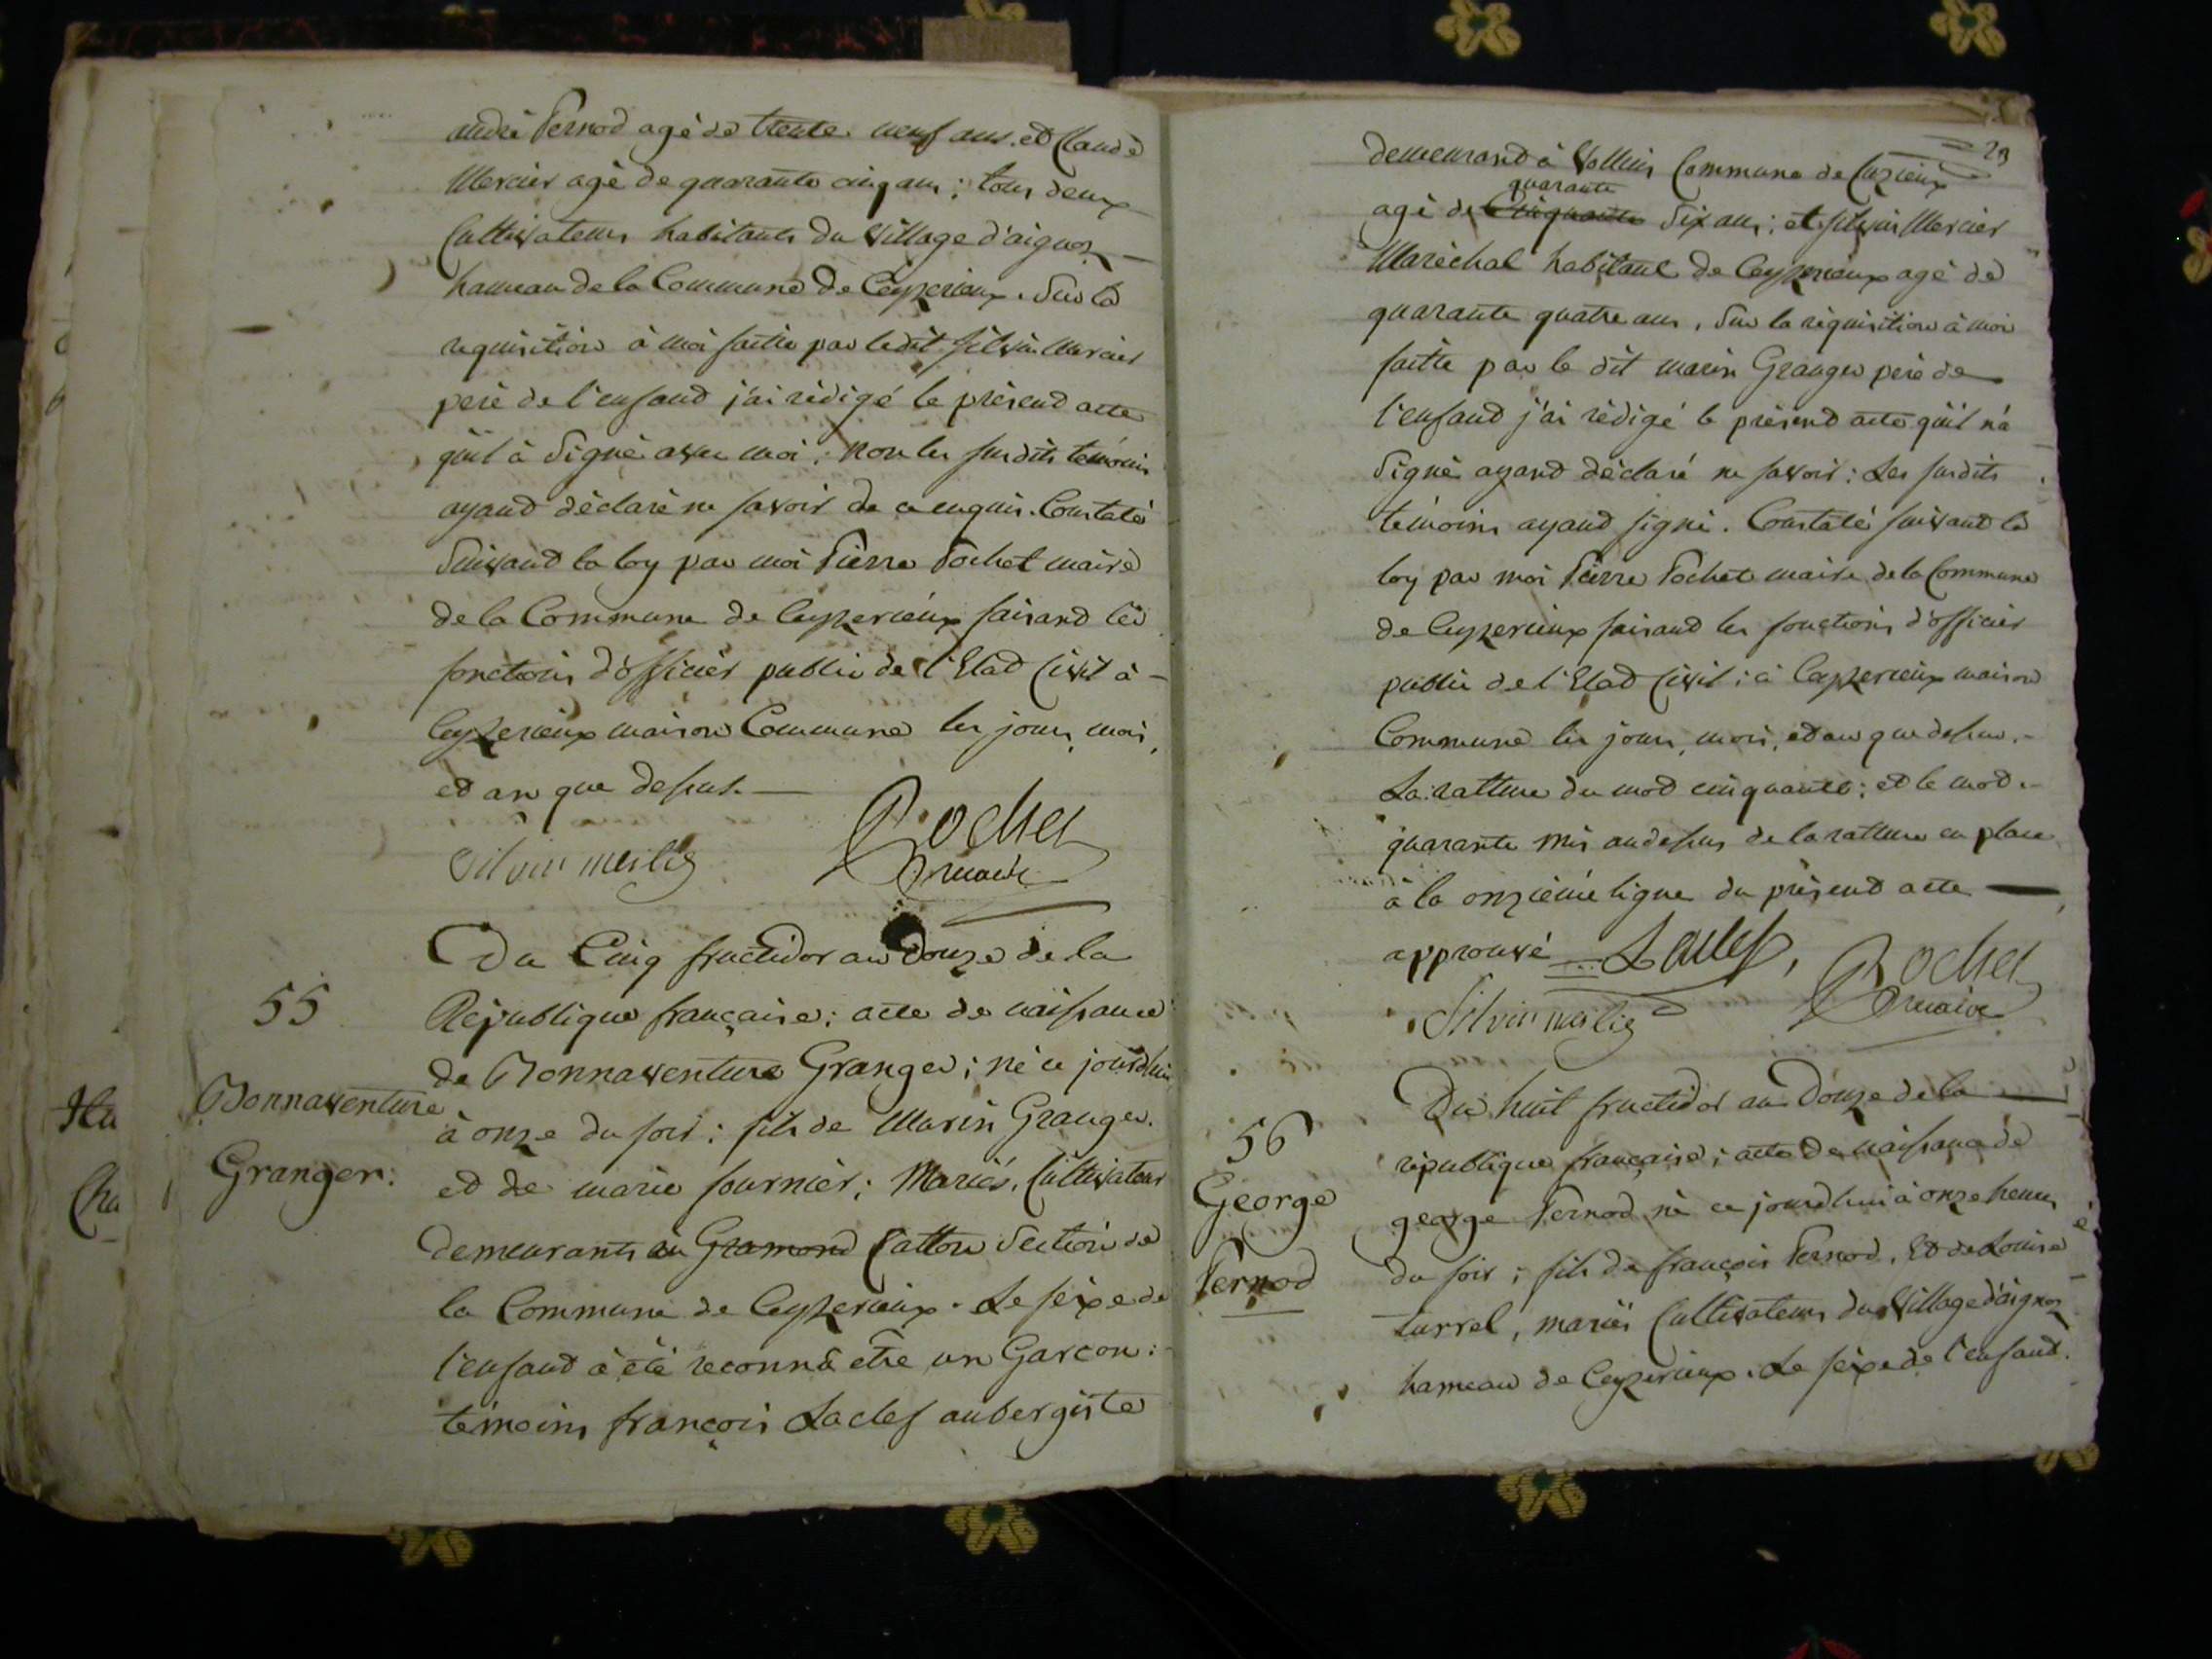 andré Pernod agé de trente neuf ans. et Claude
Mercier agé de quarante cinq ans; tous deux
Cultivateurs habitants du Village d'aignoz
hameau de la Commune de Ceyzerieux. Sur la
requisition à moi faitte par ledit silvin Mercier
pere de l'enfand j'ai rédigé le présend acte
quil à Signé avec moi; non les susdits témoins
ayand déclaré ne savoir de ce enquis. Constaté
Suivand la loy par moi Pierre Pochet maire
de la Commune de Ceyzerieux faisand les
fonctions d'officier public de l'Etad Civil à
Ceyzerieux maison Commune les jour, mois,
et an que dessus.
Silvin mersier Pochet
maire
55
Bonnaventure
Granger:
Du Cinq fructidor an Douze de la
République française; acte de naissance
de Bonnaventure Granger; né ce jourdhui
à onze du soir; fils de Marin Granger.
et de marie fournier; Mariés, Cultivateur
demeurants au Gramond Catton Section de
la Commune de Ceyzerieux. Le sexe de
l'enfand à été reconnu etre un Garcon:
témoins françois Laclef aubergiste
29
demeurand à Vollien Commune de Cuzieux
quarante
agé de Cinquante Six ans; et silvin Mercier
Maréchal habitant de Ceyzerieux agé de
quarante quatre ans, Sur la réquisition à moi
faitte par le dit marin Granger pere de
l'enfand j'ai rédigé le présend acte quil n'a
Signé ayand déclaré ne savoir: Les susdits
témoins ayand signé. Constaté suivand la
loy par moi Pierre Pochet maire de la Commune
de Ceyzerieux faisand les fonctions d'officier
public de l'Etad Civil; à Ceyzerieux maison
Commune les jour, mois, et an que dessus.
La ratture du mod cinquante; et le mod
quarante mis audessus de la ratture en place
à la onzième ligne du présend acte
approuvé Laclef, Pochet
Silvin mersier maire
56
George
Pernod
Du huit fructidor an Douze de la
république française; acte de naissance de
george Pernod né ce jourdhui à onze heures
du soir; fils de françois Pernod, Et de Louise
turrel, mariés Cultivateurs du Village d'aignoz
hameau de Ceyzerieux. Le sexe de l'enfand.